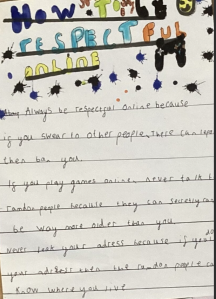 How to be
RESPECTFUL
ONLINE
Always be respectful online because
if you swear to other people, these can
then ban you.
If you play games online, never talk to
random people because they can secretly
be way more older than you.
Never leak your adress because if you
your address then the random people
know where you live